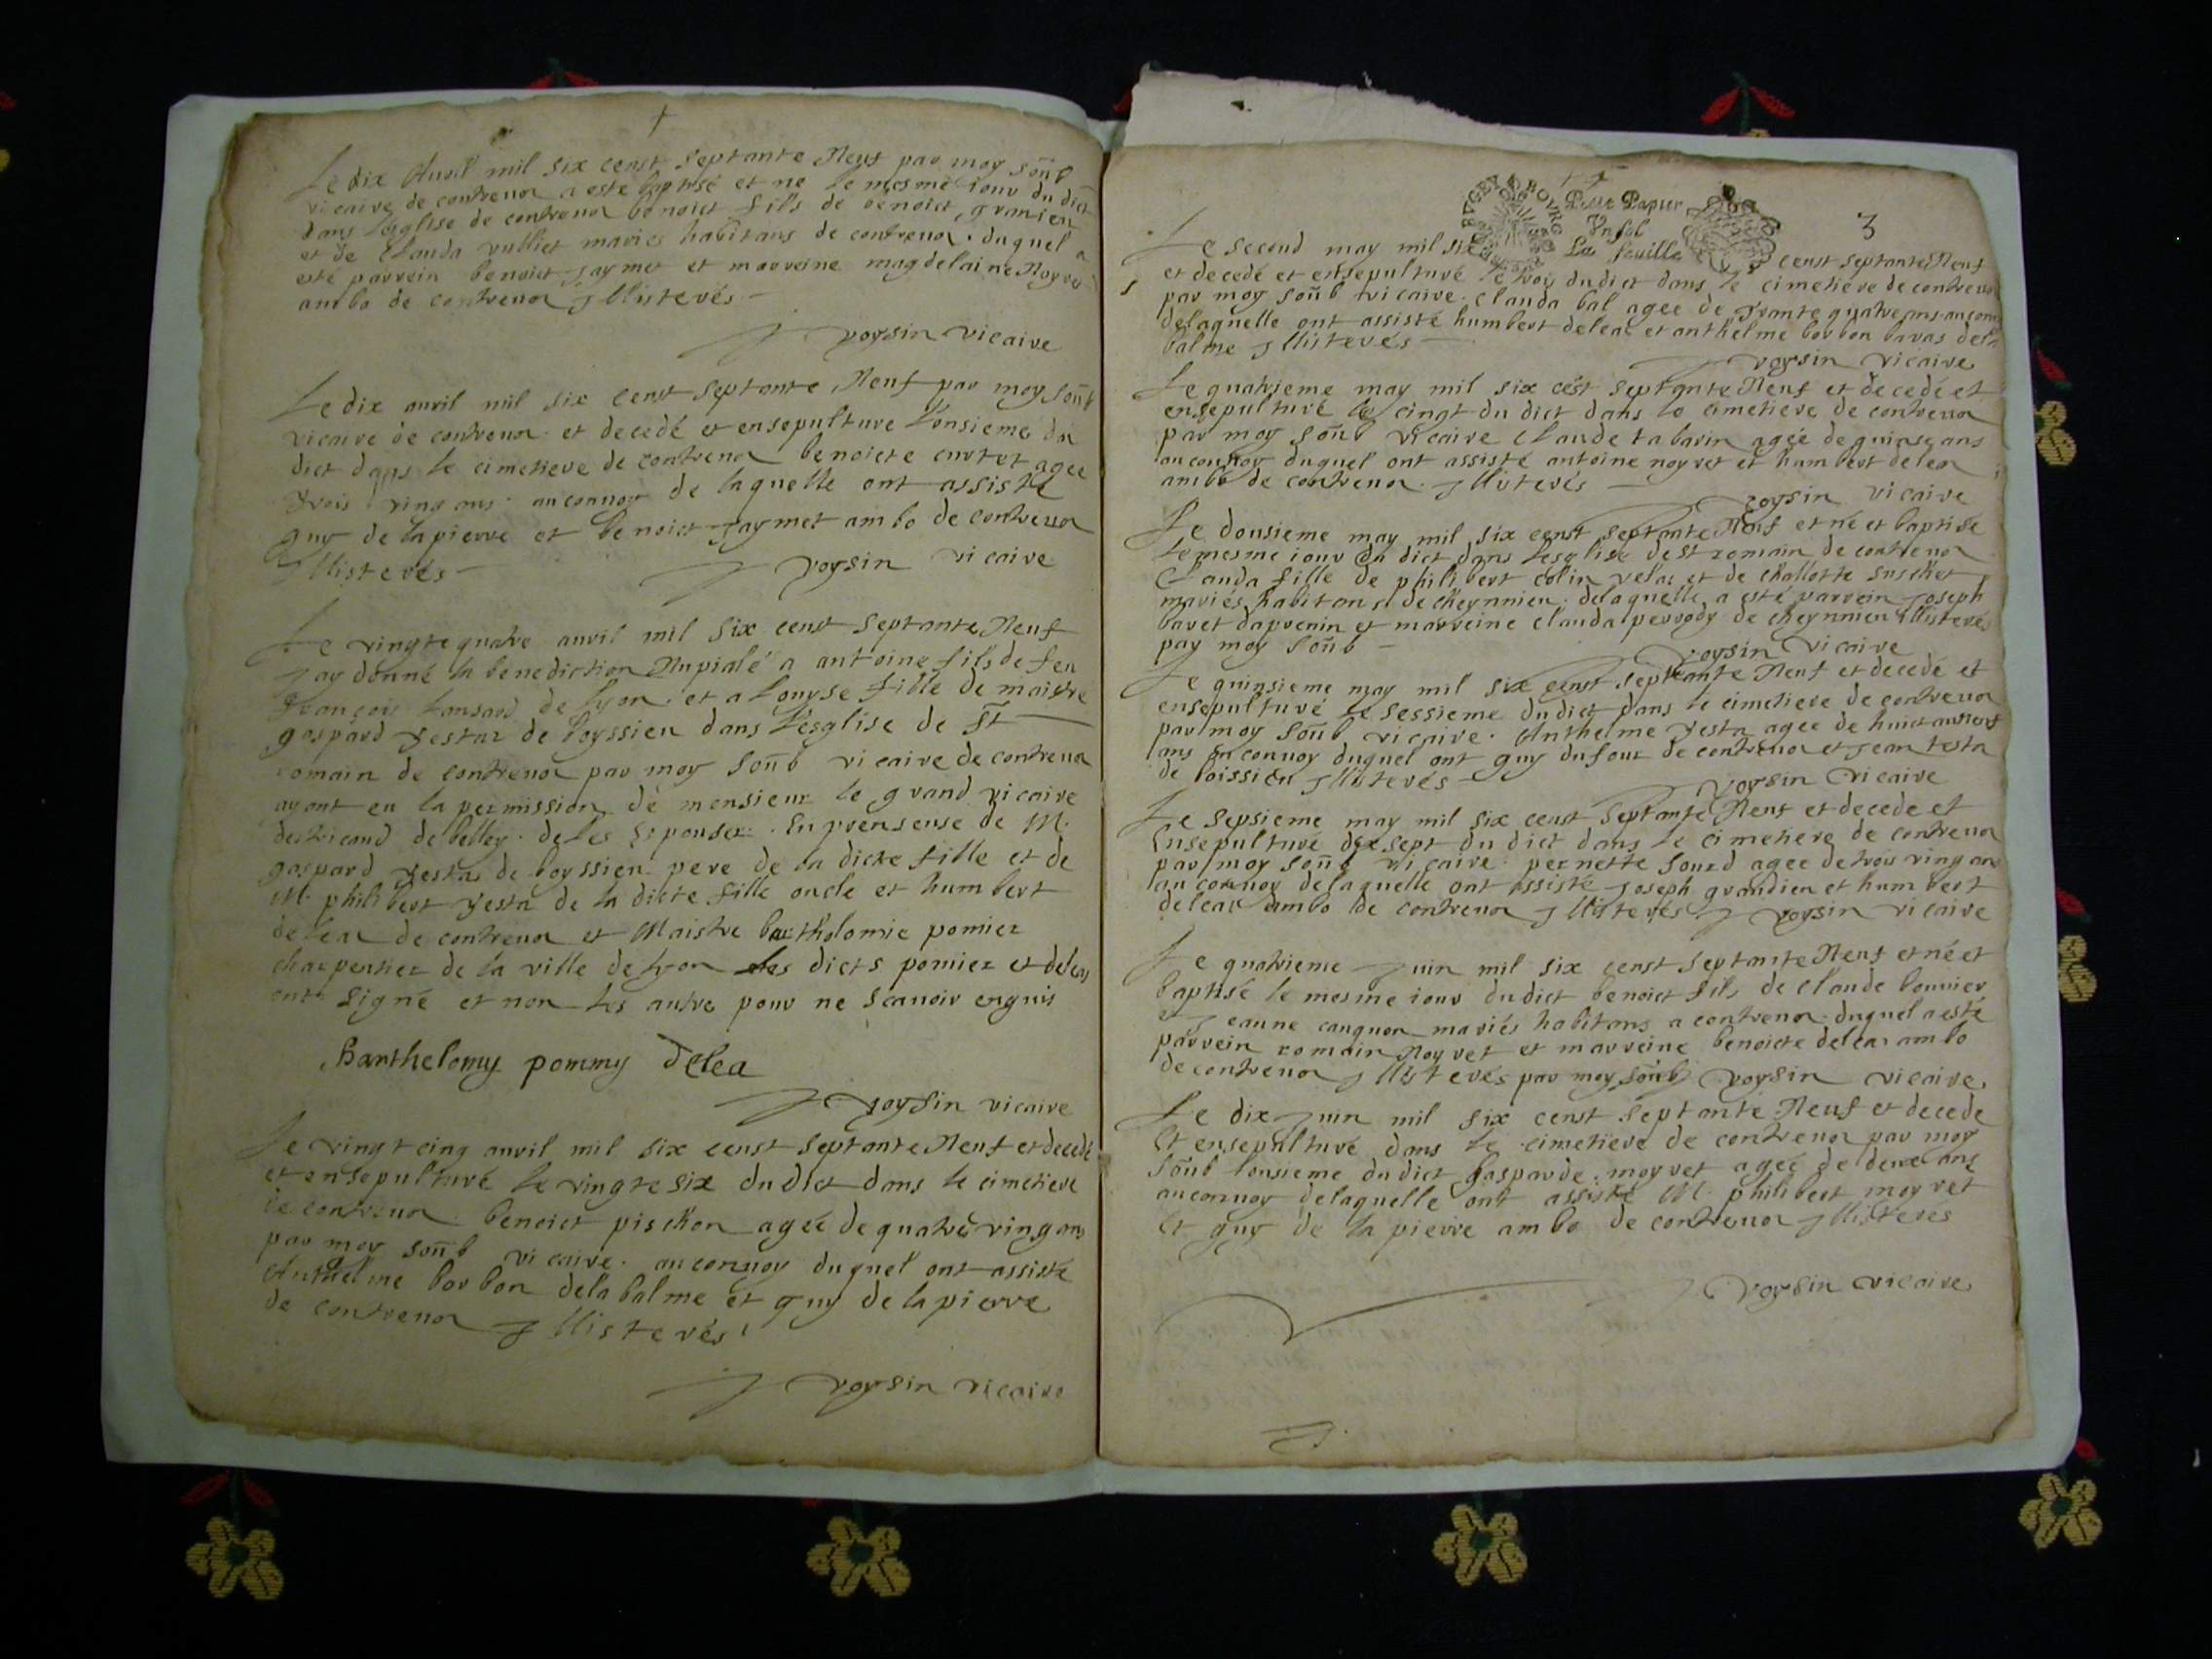 Le dix Avril mil six censt septante Neuf par moy soūb
vicaire de contrevoz a este baptisé et ne le mesme iour du dict
dans l'eglise de contrevoz benoict fils de benoict granien
et de Clauda vulliet mariés habitans de contrevoz. duquel a
esté parrein benoict Jaymet et marreine magdelaine Noyret
ambo de contrevoz Illisterés
Voysin vicaire
Le dix avril mil six censt septante Neuf par moy soūb
vicaire de contrevoz et decedé et ensepulture l'onsieme du
dict dans le cimetiere de contrevoz benoicte curtet agee
trois ving ans. au convoy de laquelle ont assisté
guy de lapierre et benoict Jaymet ambo de contrevoz
Illisterés
Voysin vicaire
Le vingte quatre avril mil six censt septante Neuf
Jay donné la benediction Nupialé a antoine fils de feu
françois lansard de lyon. et a louyse fille de maistre
gaspard testaz de boyssieu dans l'esglise de St
romain de contrevoz par moy soūb vicaire de contrevoz
ayant eu la permission de monsieur le grand vicaire
de belley. de les Esponser. En prensense de M.
gaspard testaz de boyssieu pere de la dicte fille et de
M. philibert testa de la dicte fille oncle et humbert
deleaz de contrevoz et Maistre bartholomie pomiez
charpentiez de la ville de lyon les dicts pomiez et deleaz
ont signé et non les autre pour ne scavoir enquis
Barthelomy pommy Delea
Voysin vicaire
Le vingt cinq avril mil six censt septante Neuf et decedé
et ensepulturé le vingte six du dict dans le cimetiere
de contrevoz. benoict pischon agée de quatre ving ans
par moy soūb vicaire. au convoy duquel ont assisté
Anthelme borbon de la balme et guy de la pierre
de contrevoz Illisterés
Voysin vicaire
3
BVGEY BOVRG
Petit Papier
Un sol
La feuille
Le second may mil six censt septante Neuf
et decedé et ensepulturé le trois du dict dans le cimetiere de contrevoz
par moy soūb vicaire. Clauda bal agee de trante quatre ans. au convoy
delaquelle ont assisté humbert deleaz et anthelme borbon baras dela
balme Illisterés
Voysin vicaire
Le quatrieme may mil six cēst septante Neuf et decedé et
ensepulturé le cingt du dict dans le cimetiere de contrevoz
par moy soūb vicaire Claude tabarin agée de quinse ans
au convoy duquel ont assisté antoine noyret et humbert deleaz
ambo de contrevoz. Illisterés
Voysin vicaire
Le dousieme may mil six censt septante Neuf et né et baptisé
le mesme iour du dict dans l'esglise de St romain de contrevoz
Clauda fille de philibert colin velaz et de Challotte suschet
mariés habitans de cheynnieu. delaquelle a esté parrein Joseph
bavet dapvenin et marreine clauda perrody de cheynnieu Illisterés
par moy soūb
Voysin vicaire
Le quinsieme may mil six censt septante Neuf et decedé et
ensepulturé le sessieme du dict dans le cimetiere de contrevoz
par moy soūb vicaire. Anthelme testa agee de huict a neuf
ans au convoy duquel ont guy dufour de contrevoz et Jean testa
de boissieu Illisterés
Voysin vicaire
Le sepsieme may mil six censt septante Neuf et decede et
Ensepulturé dixsept du dict dans le cimetiere de contrevoz
par moy soūb vicaire. pernette sourd agee de trois ving ans
au convoy delaquelle ont assisté Joseph grandien et humbert
deleaz ambo de contrevoz Illisterés Voysin vicaire
Le quatrieme Juin mil six censt septante Neuf et né et
baptisé le mesme iour du dict benoict fils de Claude bouvier
et Jeanne canquon mariés habitans a contrevoz. duquel a esté
parrein romain Noyret et marreine benoicte deleaz ambo
de contrevoz Illisterés par moy soūb Voysin vicaire
Le dix Juin mil six censt septante Neuf et decede
Et ensepulturé dans le cimetiere de contrevoz par moy
soūb lonsieme du dict gasparde moyret agée de deux ans
au convoy delaquelle ont assisté M. philibert moyret
Et guy de la pierre ambo de contrevoz Illisteres
Voysin vicaire